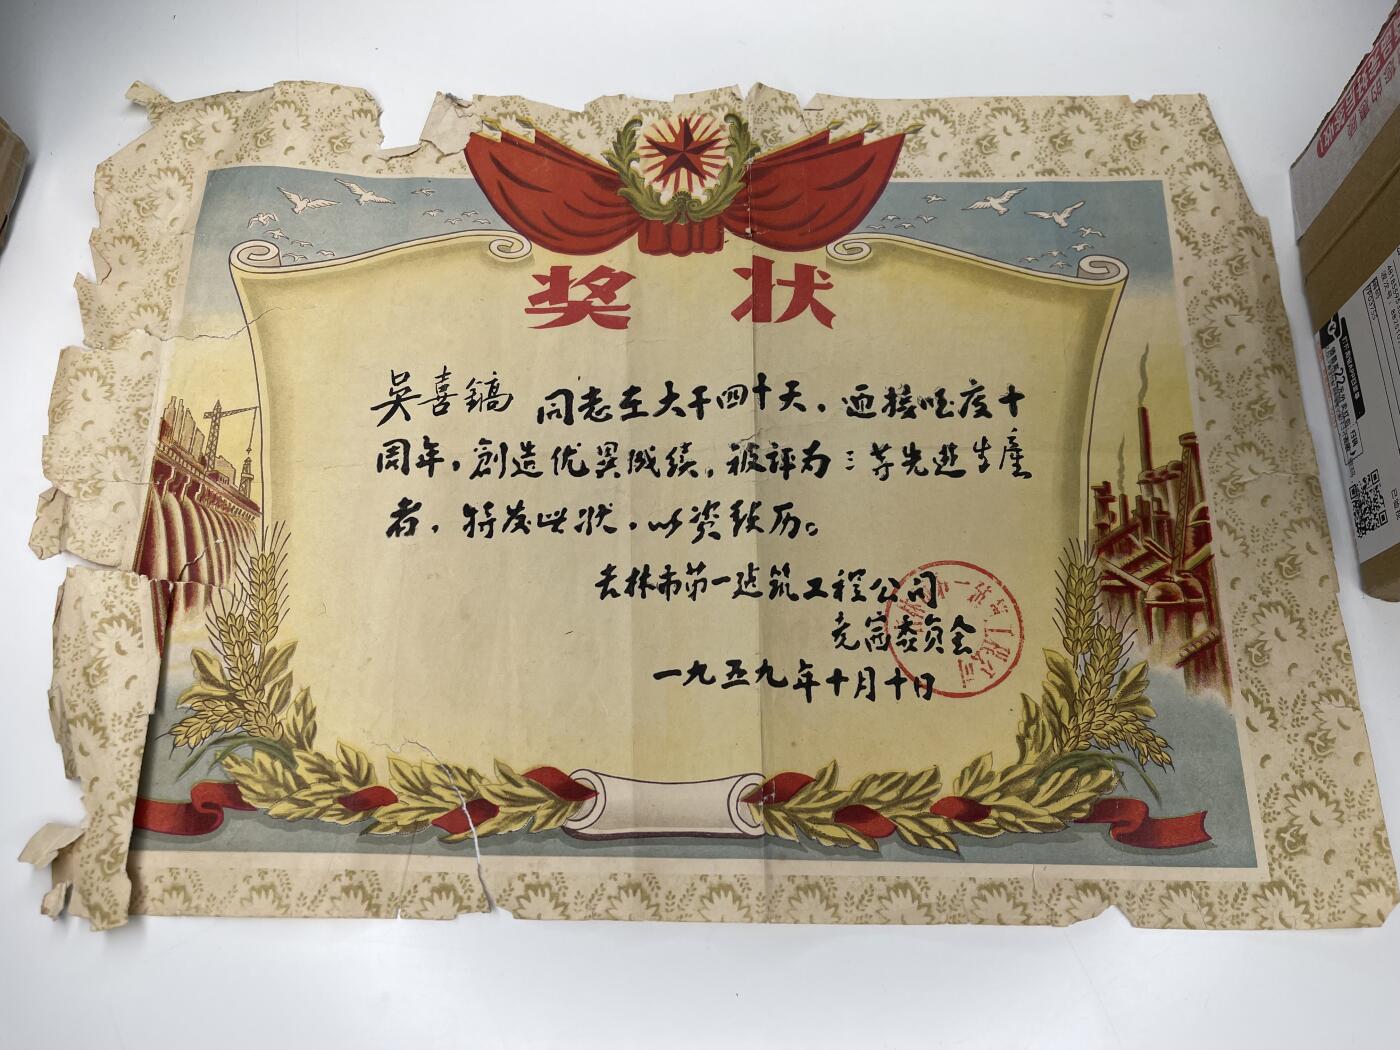 奖状
吴喜鎬 同志在大干四十天，迎接国庆十
周年，創造优異成績，被評为三等先进生產
者，特发此状，以資鼓历。
吉林市第一建筑工程公司
竞赛委員会
一九五九年十月十日